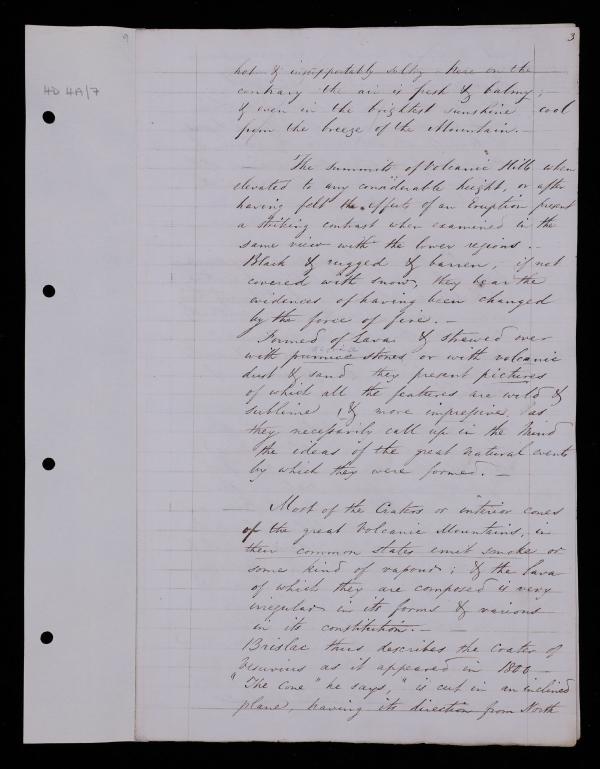 9
3
HD 4A/7
hot & insupportably sultry here on the
contrary the air is fresh & balmy;
& even in the brightest sunshine cool
from the breeze of the Mountain. —
The summits of Volcanic Hills when
elevated to any considerable height, or after
having felt the effects of an Eruption present
a striking contrast when examined in the
same view with the lower regions. —
Black & rugged & barren, if not
covered with snow, they bear the
evidences of having been changed
by the force of fire. —
Formed of Lava & strewed over
with pumice stones or with volcanic
dust & sand they present pictures
of which all the features are wild &
sublime, & more impressive, as
they necessarily call up in the Mind
the ideas of the great natural events
by which they were formed. —
Most of the Craters or interior cones
of the great Volcanic Mountains, in
their common states emit smoke or
some kind of vapour; & the lava
of which they are composed is very
irregular in its forms & various
in its constitution. —
Brislac thus describes the Crater of
Vesuvius as it appeared in 1800 —
"The Cone" he says, "is cut in an inclined
plane, having its direction from North